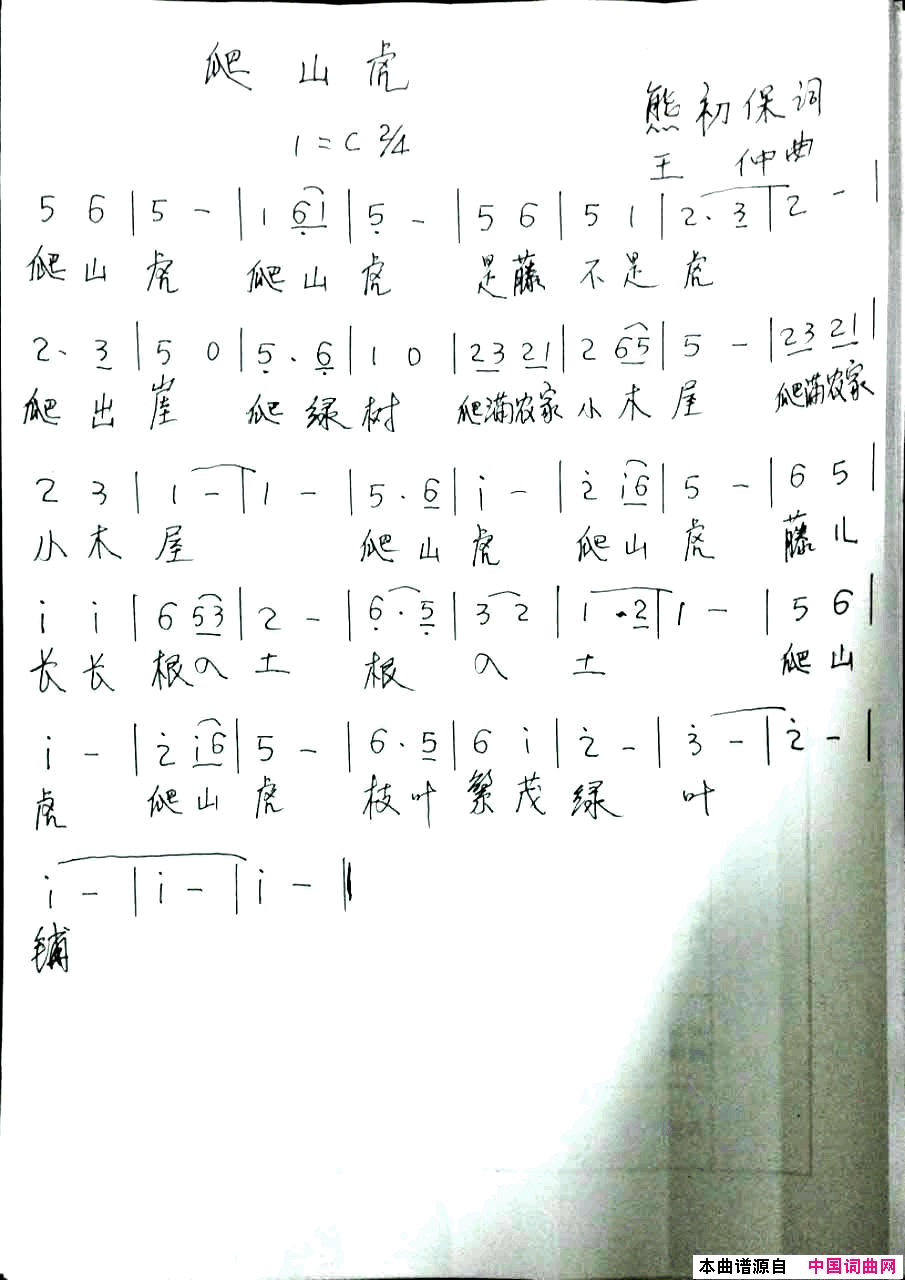 爬山虎
熊初保词
1=C 2/4
王 仲曲
5 6 | 5 - | 1 6̣1 | 5̣ - | 5 6 | 5 1 | 2. 3 | 2 - |
爬山虎 爬山虎 是藤不是虎
2. 3 | 5 0 | 5̣. 6̣ | 1 0 | 23 21 | 2 65 | 5 - | 23 21 |
爬出崖 爬绿树 爬满农家小木屋 爬满农家
2 3 | 1 - | 1 - | 5. 6 | i - | 2̇ i6 | 5 - | 6 5 |
小木屋 爬山虎 爬山虎 藤儿
i i | 6 53 | 2 - | 6̣. 5̣ | 3 2 | 1 .2 | 1 - | 5 6 |
长长根入土 根入土 爬山
i - | 2̇ i6 | 5 - | 6. 5 | 6 i | 2̇ - | 3̇ - | 2̇ - |
虎 爬山虎 枝叶繁茂绿叶
i - | i - | i - ‖
铺
本曲谱源自 中国词曲网